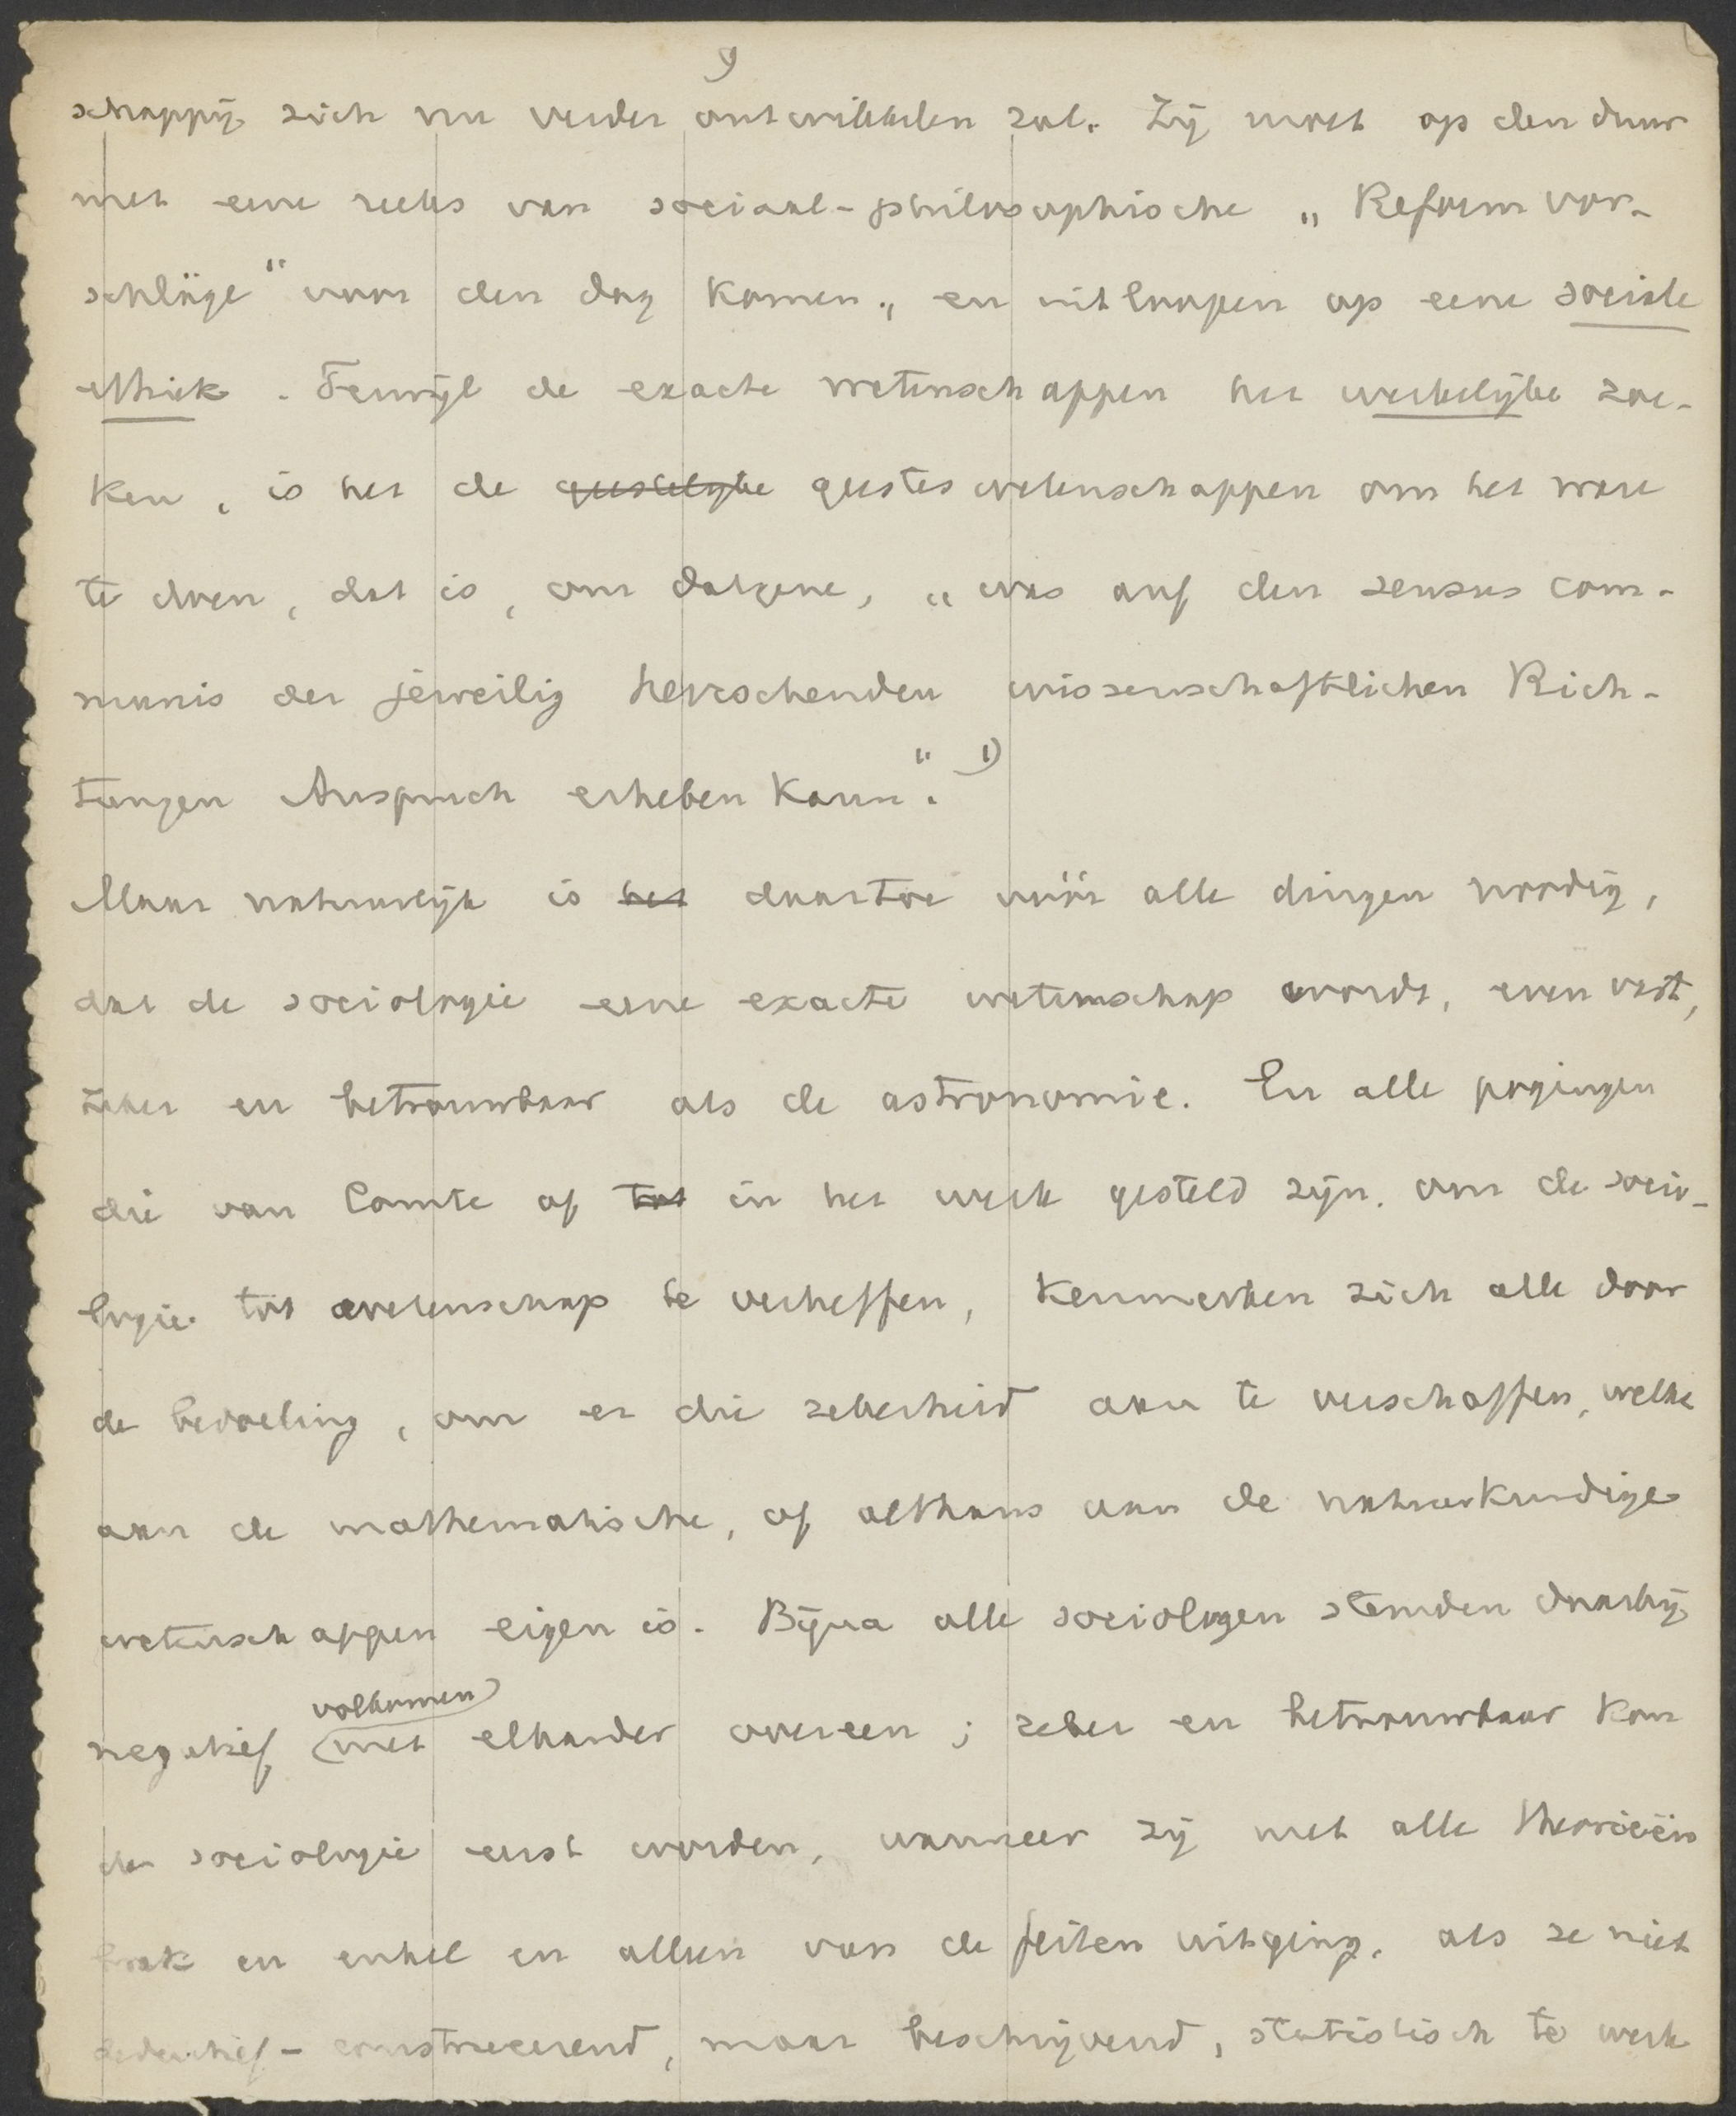 9
schappij zich nu verder ontwikkelen zal. Zij moet op den duur
met eene reeks van sociaal-philosophische „Reformvor-
schläge" voor den dag komen, en uitloopen op eene sociale
ethiek. Terwijl de exacte wetenschappen het werkelijke zoe-
ken, is het de geestelijke geisteswetenschappen om het ware
te doen, dat is, om datgene, „was auf den sensus com-
munis der jeweilig herrschenden wissenschaftlichen Rich-
tungen Anspruch erheben kann." 1)
Maar natuurlijk is het daartoe vóór alle dingen noodig,
dat de sociologie eene exacte wetenschap wordt, even vast,
zeker en betrouwbaar als de astronomie. En alle pogingen
die van Comte af tot in het werk gesteld zijn, om de socio-
logie tot wetenschap te verheffen, kenmerken zich alle door
de bedoeling, om er die zekerheid aan te verschaffen, welke
aan de mathematische, of althans aan de natuurkundige
wetenschappen eigen is. Bijna alle sociologen stemden daarbij
volkomen
negatief met elkander overeen; zeker en betrouwbaar kon
de sociologie eerst worden, wanneer zij met alle theorieën
brak en enkel en alleen van de feiten uitging, als ze niet
deductief-construeerend, maar beschrijvend, statistisch te werk